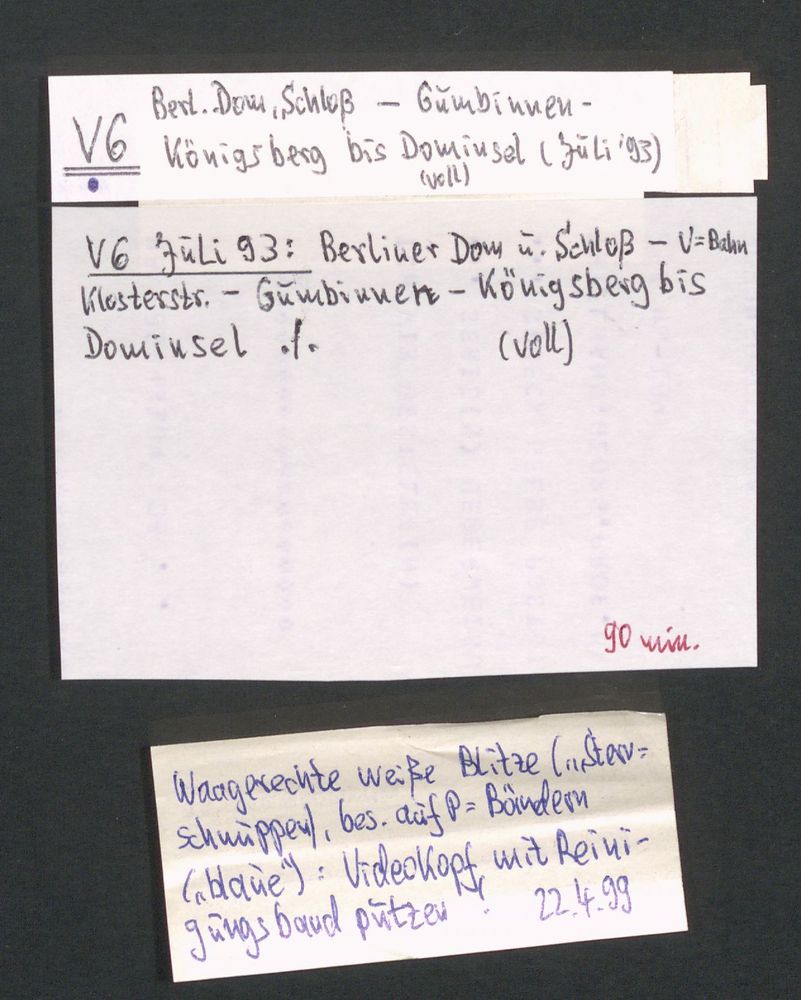 V6
Berl. Dom, „Schloß – Gumbinnen-
Königsberg bis Dominsel (Juli '93)
(voll)
V6 Juli 93: Berliner Dom u. Schloß – U=Bahn
Klosterstr. – Gumbinnen – Königsberg bis
Dominsel ./. (voll)
90 min.
Waagerechte weiße Blitze („Stern=
schnuppen), bes. auf P=Bändern
(„blaue“): Videokopf mit Reini-
gungsband putzen! 22.4.99